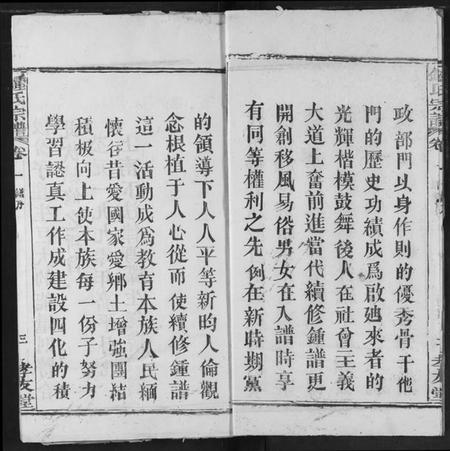 政部門以身作則的優秀骨干他
門的歷史功績成爲啟廸來者的
光輝楷模鼓舞後人在社會主義
大道上奮前進當代續修鍾譜更
開創移風易俗男女在入譜時享
有同等權利之先例在新時期黨
的領導下人人平等新昀人倫觀
念根植于人心從而使續修鍾譜
這一活動成爲教育本族人民緬
懷往昔愛國家愛鄉土增強團結
積极向上使本族每一份子努力
學習認真工作成建設四化的積
鍾氏宗譜
卷一
三
孝友堂